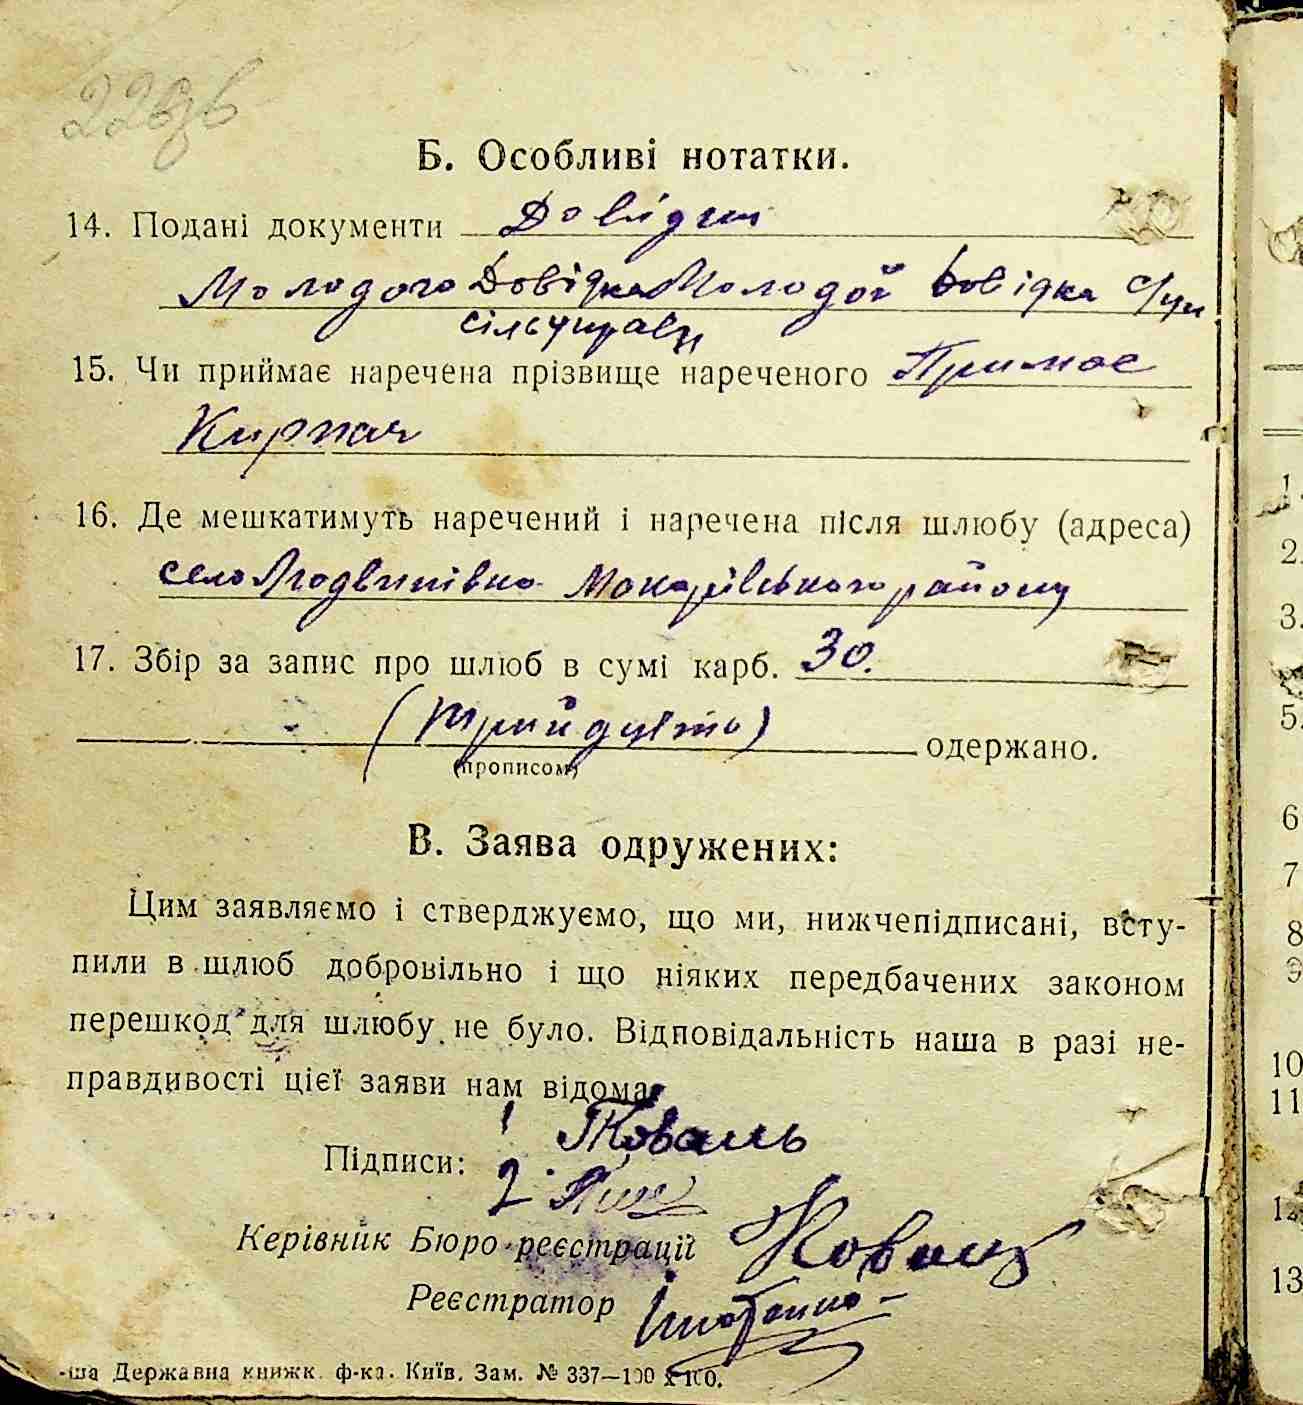 22зв
Б. Особливі нотатки.
14. Подані документи Довідки
Молодого Довідка Молодої Довідка
сільуправи
15. Чи приймає наречена прізвище нареченого Приймає
Кирпач
16. Де мешкатимуть наречений і наречена після шлюбу (адреса)
село Людвинівка Макарівського району
17. Збір за запис про шлюб в сумі карб. 30.
(трийдцять)
одержано.
(прописом)
В. Заява одружених:
Цим заявляємо і стверджуємо, що ми, нижчепідписані, всту-
пили в шлюб добровільно і що ніяких передбачених законом
перешкод для шлюбу не було. Відповідальність наша в разі не-
правдивості цієї заяви нам відома.
1 Коваль
Підписи:
2.
Керівник Бюро реєстрації
Реєстратор
-ша Державна книжк. ф-ка. Київ. Зам. № 337—100
1.
2.
3.
5.
6
7
8
9
10
11
12
13